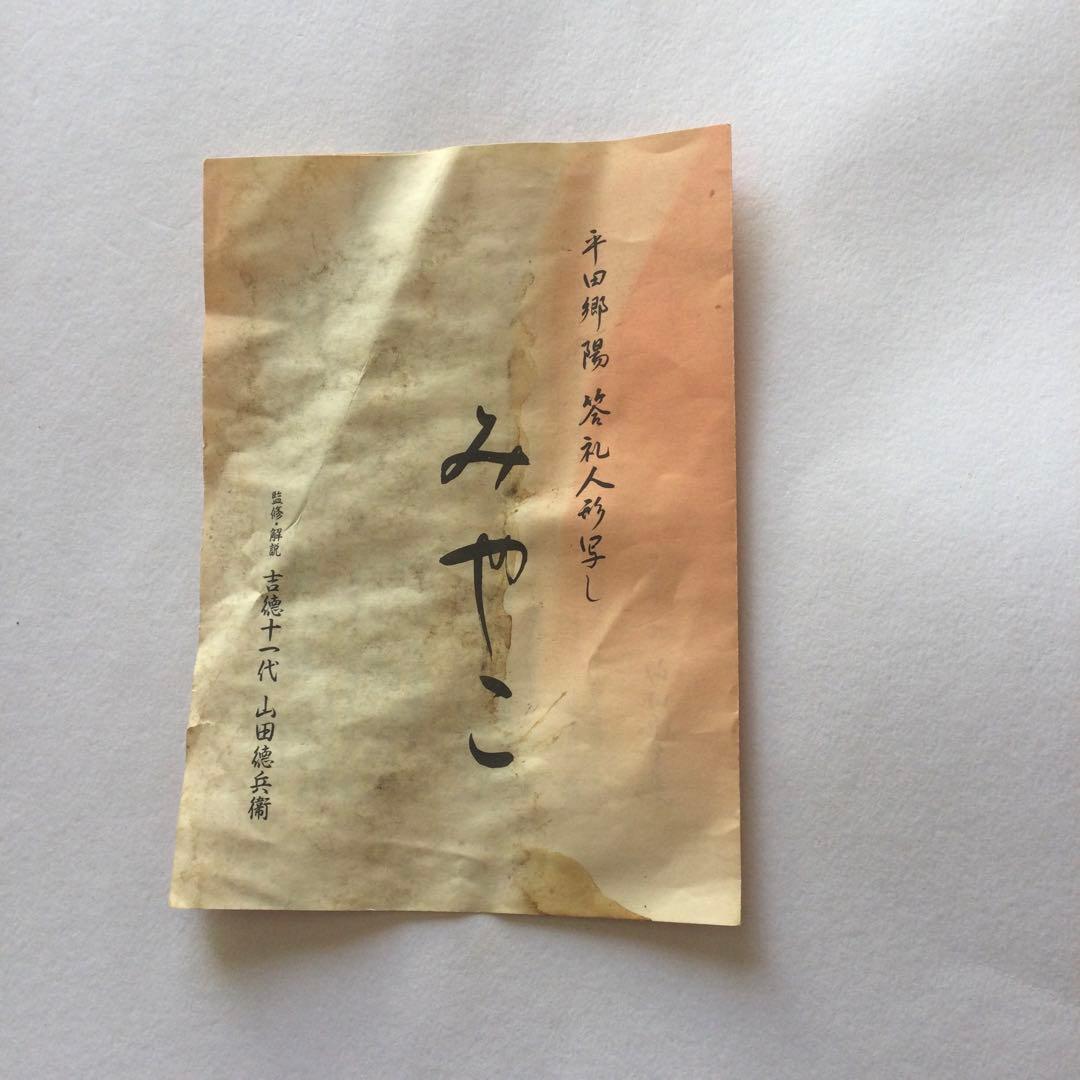 平田郷陽 答礼人形写し
みやこ
監修・解説 吉徳十一代 山田徳兵衞